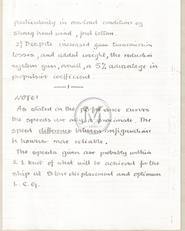 particularly in overload conditions or
strong head wind, just below.
2) Despite increased gear transmission
losses, and added weight, the reduction
system gives, overall, a 5% advantage in
propulsive coefficient.
NOTE:
As stated in the performance curves
the speeds are only approximate. The
speed difference between configurations
is however more reliable.
The speeds given are probably within
± 1 knot of what will be achieved for the
ship at D blue displacement and optimum
L.C.G.